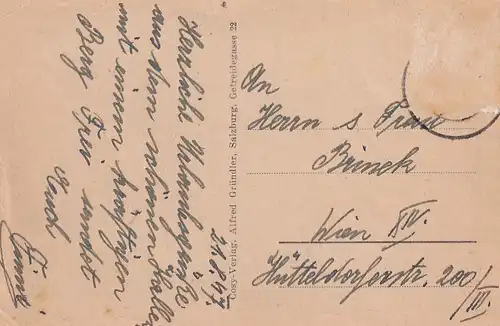 21.8.47
Herzliche Urlaubsgrüße
aus dem schönen
mit einem kräftigen
Berg Frei sendet
Euch
Cosy-Verlag, Alfred Gründler, Salzburg, Getreidegasse 22
An
Herrn s Frau
Brinek
Wien XIV.
Hütteldorferstr. 200/
III.